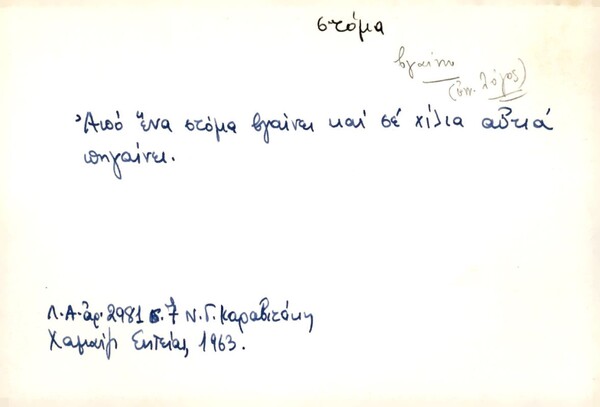 στόμα
βγαίνω
(ὑπ. λόγος)
Ἀπό ἕνα στόμα βγαίνει καί σέ χίλια αὐτιά
πηγαίνει.
Λ.Α. ἀρ. 2981 σ. 7 Ν. Γ. Καραβιτάκη
Σητείας 1963.